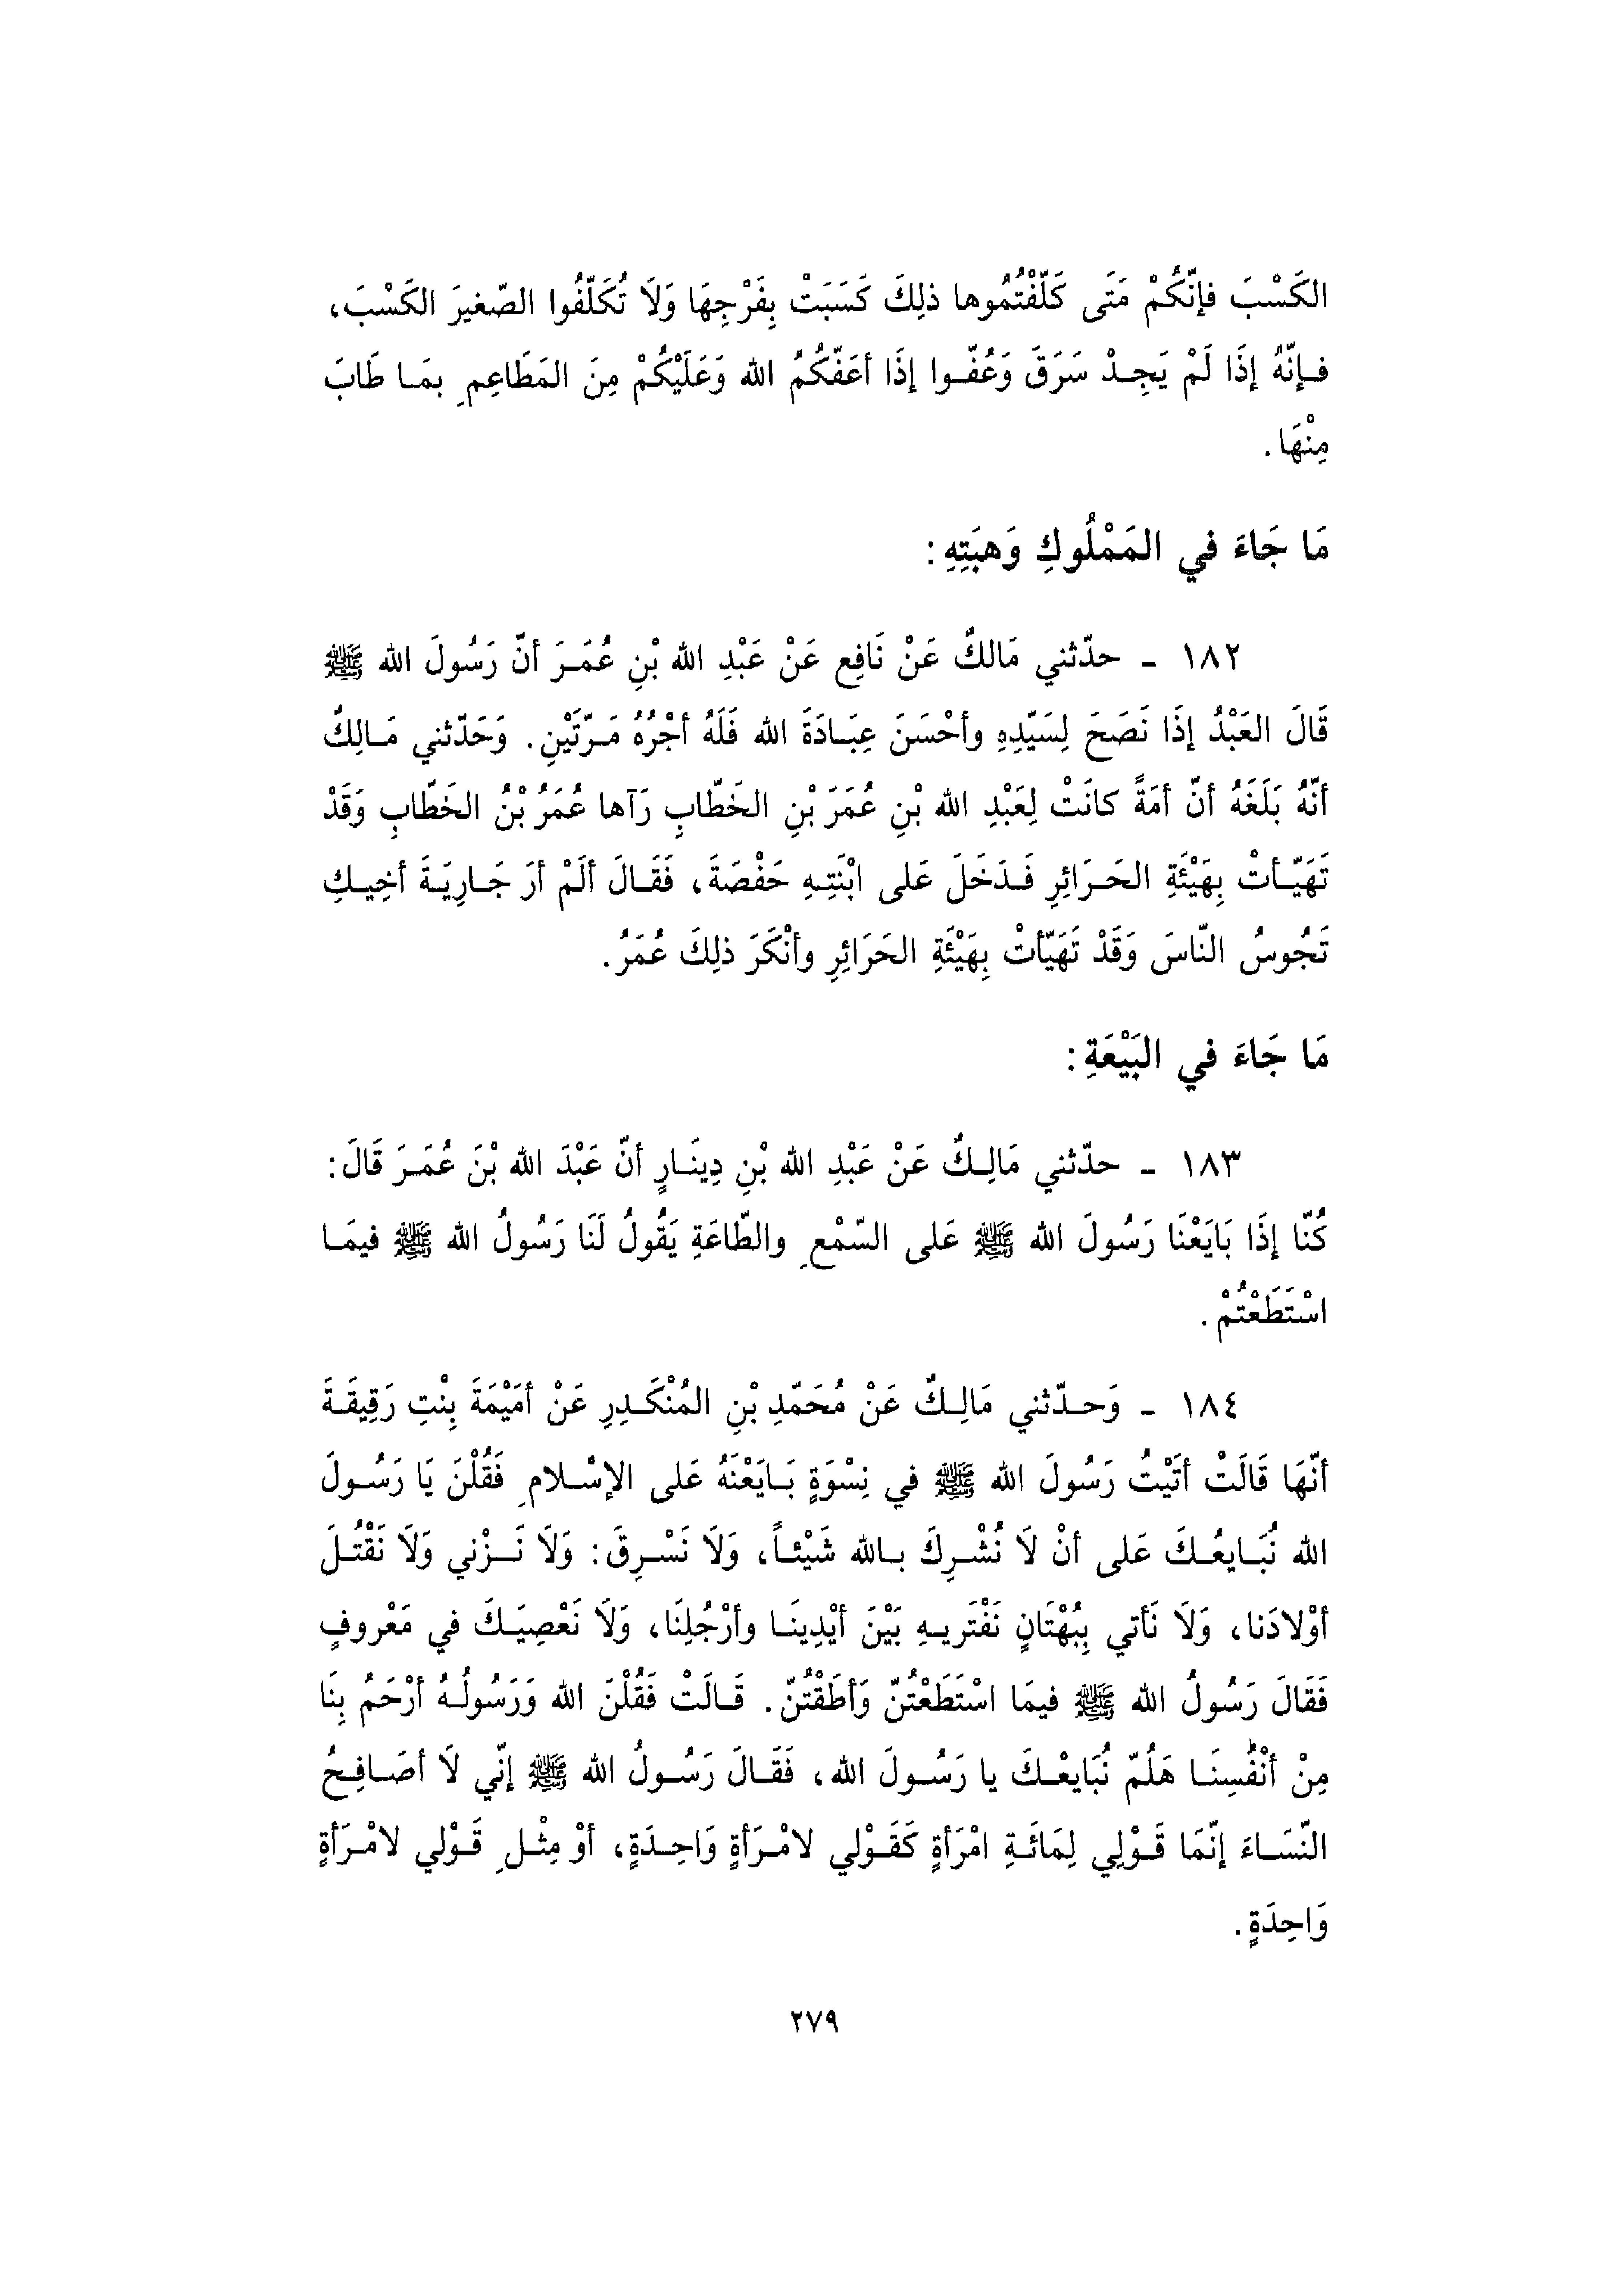 الكَسْبَ فإنّكُمْ مَتَى كَلّفْتُمُوها ذلِكَ كَسَبَتْ بِفَرْجِهَا وَلَا تُكَلّفُوا الصّغيرَ الكَسْبَ،
فإنّهُ إذَا لَمْ يَجِدْ سَرَقَ وَعُفّوا إذَا أعَفّكُمُ الله وَعَلَيْكُمْ مِنَ المَطَاعِمِ بمَا طَابَ
مِنْهَا.
مَا جَاءَ في المَمْلُوكِ وَهبَتِهِ:
١٨٢ - حدّثني مَالكٌ عَنْ نَافِع عَنْ عَبْدِ الله بْنِ عُمَرَ أنّ رَسُولَ الله ﷺ
قَالَ العَبْدُ إذَا نَصَحَ لِسَيّدِهِ وأحْسَنَ عِبَادَةَ الله فَلَهُ أجْرُهُ مَرّتَيْنِ. وَحَدّثني مَالِكٌ
أنّهُ بَلَغَهُ أنّ أمَةً كانَتْ لِعَبْدِ الله بْنِ عُمَرَ بْنِ الخَطّابِ رَآها عُمَرُ بْنُ الخَطّابِ وَقَدْ
تَهَيّأتْ بِهَيْئَةِ الحَرَائِرِ فَدَخَلَ عَلى ابْنَتِهِ حَفْصَةَ، فَقَالَ ألَمْ أرَ جَارِيَةَ أخِيكِ
تَجُوسُ النّاسَ وَقَدْ تَهَيّأتْ بِهَيْئَةِ الحَرَائِرِ وأنْكَرَ ذلِكَ عُمَرُ.
مَا جَاءَ في البَيْعَةِ:
١٨٣ - حدّثني مَالِكٌ عَنْ عَبْدِ الله بْنِ دِينَارٍ أنّ عَبْدَ الله بْنَ عُمَرَ قَالَ:
كُنّا إذَا بَايَعْنَا رَسُولَ الله ﷺ عَلى السّمْعِ والطّاعَةِ يَقُولُ لَنَا رَسُولُ الله ﷺ فيمَا
اسْتَطَعْتُمْ.
١٨٤ - وَحدّثني مَالِكٌ عَنْ مُحَمّدِ بْنِ المُنْكَدِرِ عَنْ أمَيْمَةَ بِنْتِ رَقِيقَةَ
أنّهَا قَالَتْ أتَيْتُ رَسُولَ الله ﷺ في نِسْوَةٍ بَايَعْنَهُ عَلى الإسْلامِ فَقُلْنَ يَا رَسُولَ
الله نُبَايعُكَ عَلى أنْ لَا نُشْرِكَ بالله شَيْئاً، وَلَا نَسْرِقَ: وَلَا نَزْني وَلَا نَقْتُلَ
أوْلادَنا، وَلَا نَأتي بِبُهْتَانٍ نَفْتَريهِ بَيْنَ أيْدِينَا وأرْجُلِنَا، وَلَا نَعْصِيَكَ في مَعْروفٍ
فَقَالَ رَسُولُ الله ﷺ فيمَا اسْتَطَعْتُنّ وَأطَقْتُنّ. قَالَتْ فَقُلْنَ الله وَرَسُولُهُ أرْحَمُ بِنَا
مِنْ أنْفُسِنَا هَلُمّ نُبَايعْكَ يا رَسُولَ الله، فَقَالَ رَسُولُ الله ﷺ إنّي لَا أصَافِحُ
النّسَاءَ إنّمَا قَوْلِي لِمَائَةِ امْرَأةٍ كَقَوْلي لامْرَأةٍ وَاحِدَةٍ، أوْ مِثْلِ قَوْلي لامْرَأةٍ
وَاحِدَةٍ.
٢٧٩